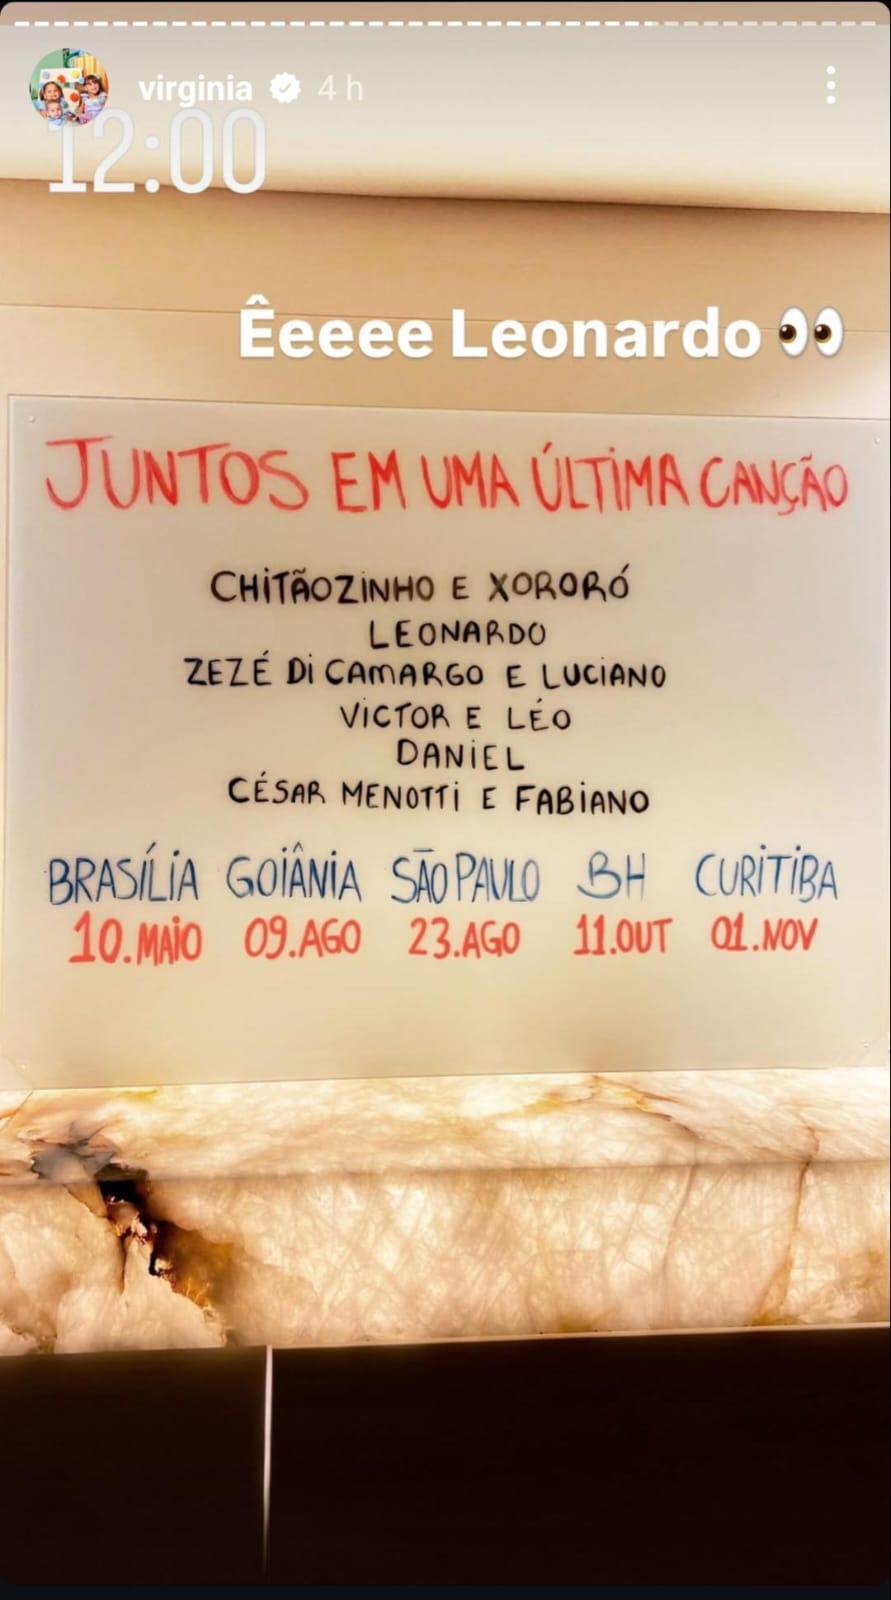 virginia 4 h
12:00
Êeeeee Leonardo 👀
JUNTOS EM UMA ÚLTIMA CANÇÃO
CHITÃOZINHO E XORORÓ
LEONARDO
ZEZÉ DI CAMARGO E LUCIANO
VICTOR E LÉO
DANIEL
CÉSAR MENOTTI E FABIANO
BRASÍLIA GOIÂNIA SÃO PAULO BH CURITIBA
10.MAIO 09.AGO 23.AGO 11.OUT 01.NOV